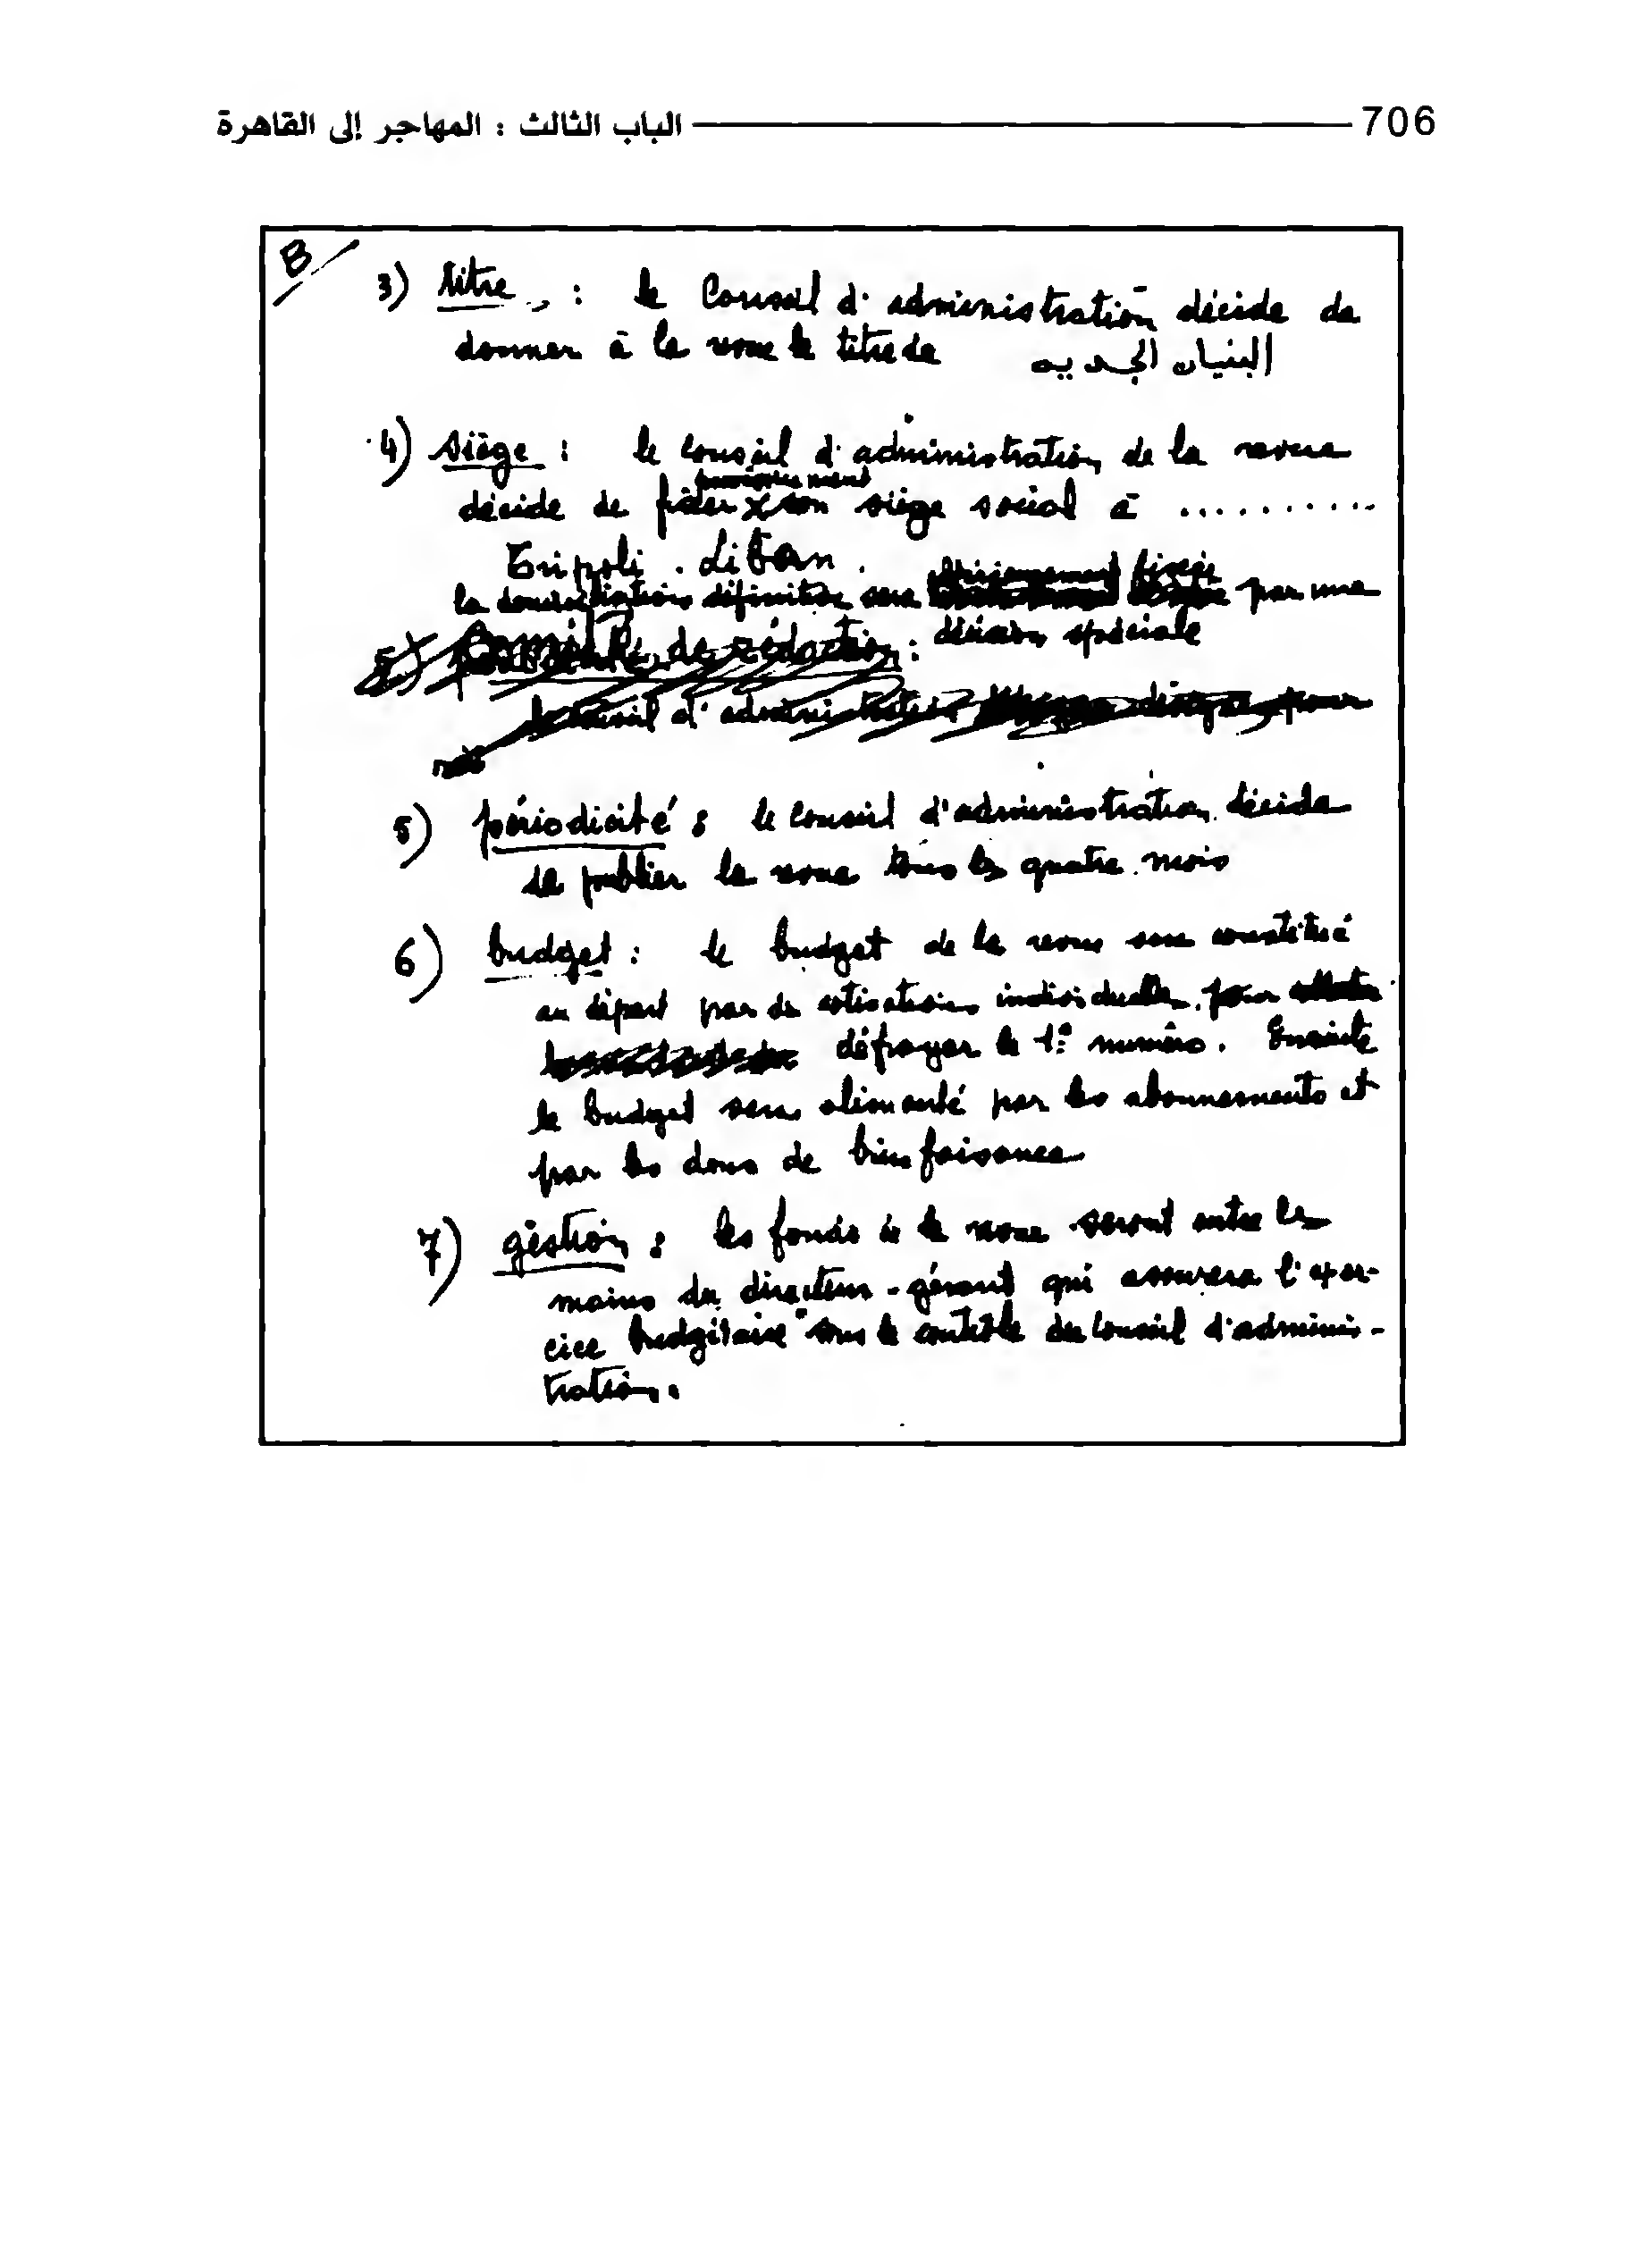 706 الباب الثالث : المهاجر إلى القاهرة
B/
3) titre : le Conseil d'administration décide de
donner à la revue le titre de البنيان الجديد
4) siège : le conseil d'administration de la revue
décide de fixer provisoirement son siège social à ..........
Tripoli . Liban .
la domiciliation définitive sera fixée par une
décision spéciale
5) Comité de rédaction :
le conseil d'administration désigne pour
5) périodicité : le conseil d'administration décide
de publier la revue tous les quatre mois
6) budget : le budget de la revue sera constitué
au départ par des cotisations individuelles, pour
défrayer le 1e numéro. Ensuite
le budget sera alimenté par les abonnements et
par les dons de bienfaisance
7) géstion : les fonds de la revue seront entre les
mains du directeur-gérant qui assurera l'exer-
cice budgétaire sous le contrôle du Conseil d'adminis-
tration.